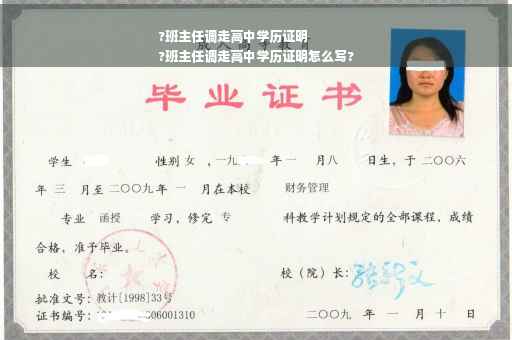 ?班主任调走高中学历证明
成人高等教育
?班主任调走高中学历证明怎么写?
毕业证书
学生 性别 女 ,一九 年 一 月八 日生,于 二〇〇六
年 三 月至 二〇〇九 年 一 月在本校 财务管理
专业 函授 学习,修完 专 科教学计划规定的全部课程,成绩
合格,准予毕业。
校 名: 校(院)长:
批准文号:教计[1998]33号
证书编号: 06001310 二〇〇九 年 一 月 十 日